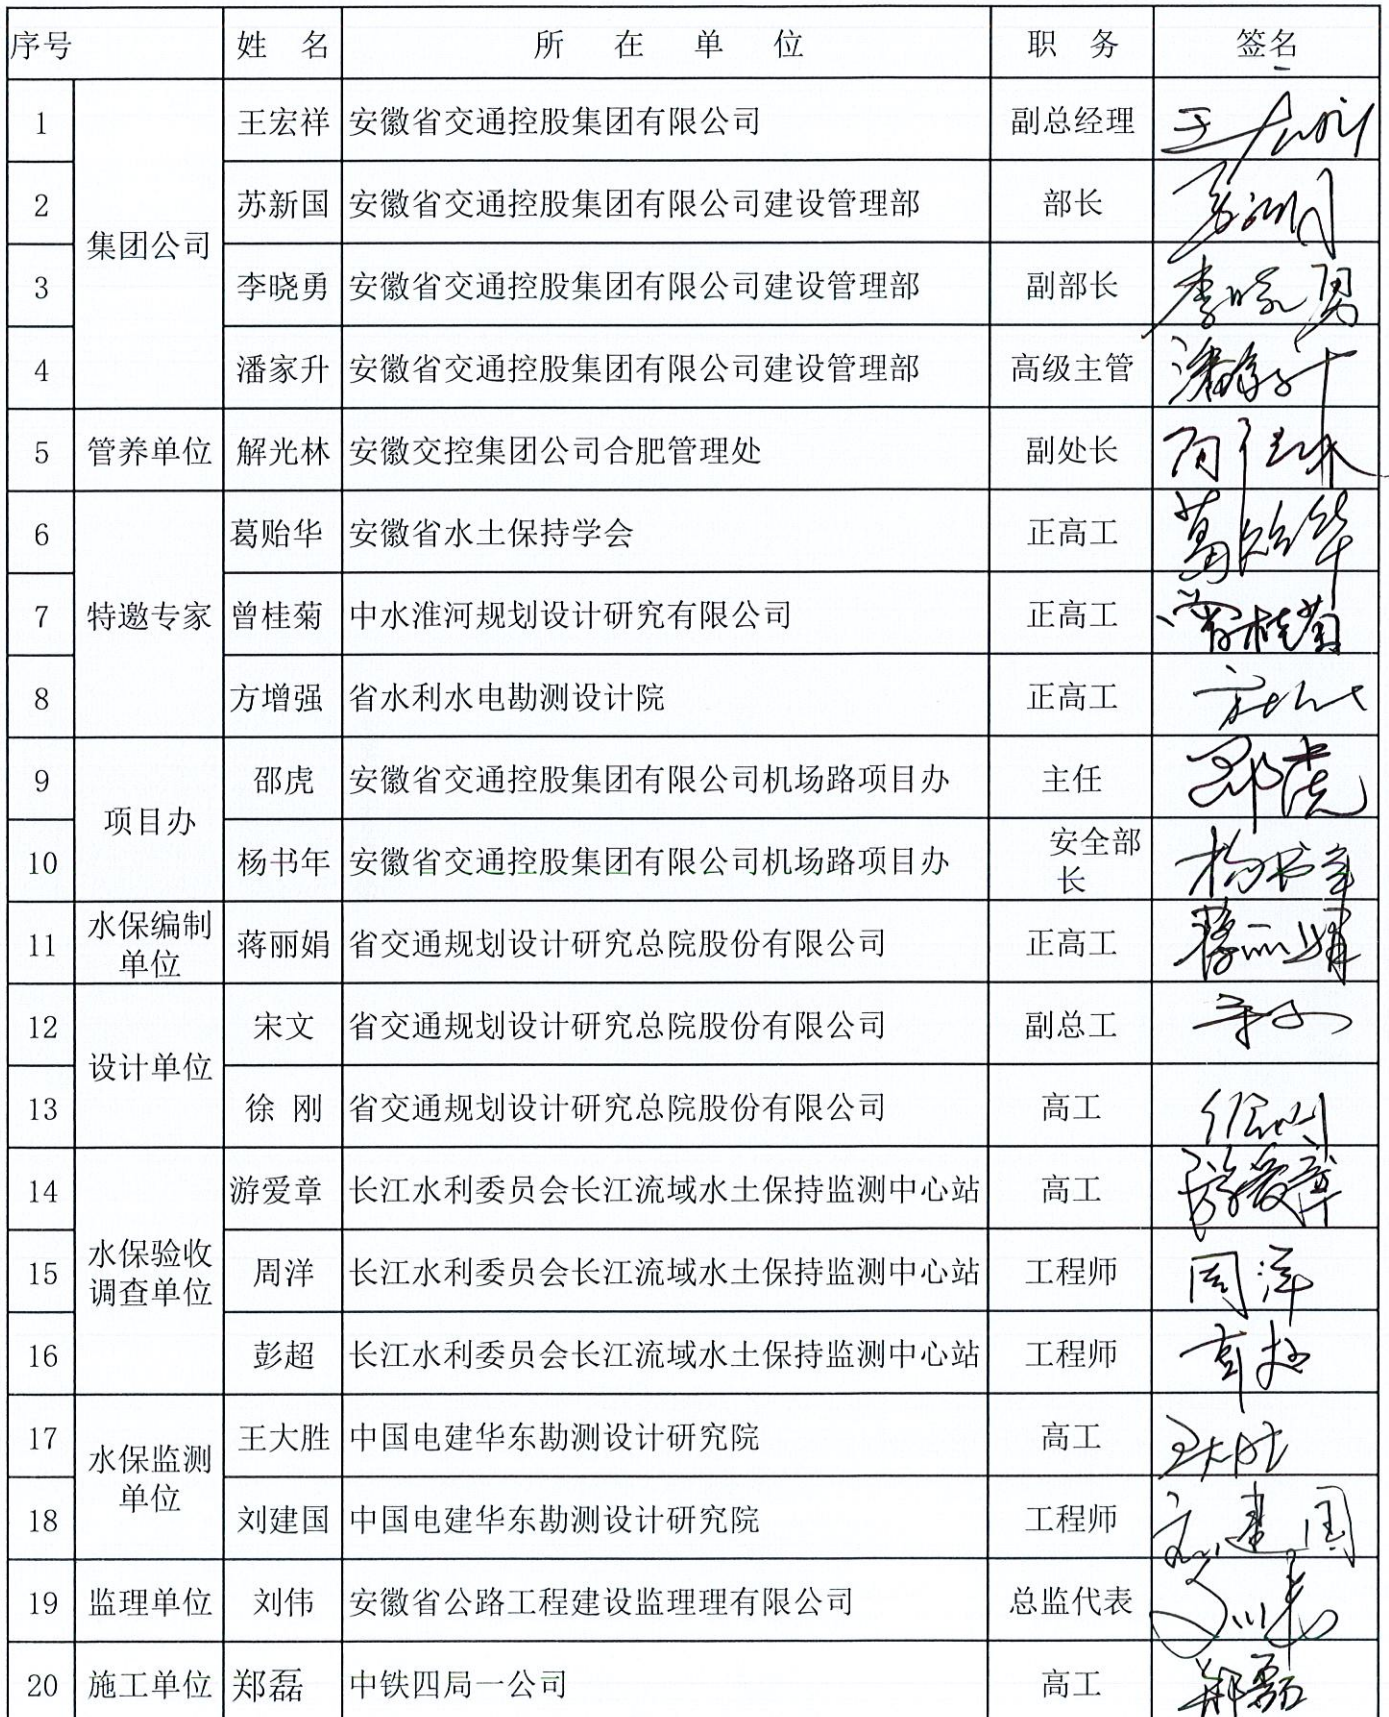 序号 姓 名 所 在 单 位 职 务 签名
1 集团公司 王宏祥 安徽省交通控股集团有限公司 副总经理 王宏祥
2 苏新国 安徽省交通控股集团有限公司建设管理部 部长 苏新国
3 李晓勇 安徽省交通控股集团有限公司建设管理部 副部长 李晓勇
4 潘家升 安徽省交通控股集团有限公司建设管理部 高级主管 潘家升
5 管养单位 解光林 安徽交控集团公司合肥管理处 副处长
6 特邀专家 葛贻华 安徽省水土保持学会 正高工 葛贻华
7 曾桂菊 中水淮河规划设计研究有限公司 正高工 曾桂菊
8 方增强 省水利水电勘测设计院 正高工 方增强
9 项目办 邵虎 安徽省交通控股集团有限公司机场路项目办 主任 邵虎
10 杨书年 安徽省交通控股集团有限公司机场路项目办 安全部
长 杨书年
11 水保编制
单位 蒋丽娟 省交通规划设计研究总院股份有限公司 正高工 蒋丽娟
12 设计单位 宋文 省交通规划设计研究总院股份有限公司 副总工 宋文
13 徐 刚 省交通规划设计研究总院股份有限公司 高工 徐刚
14 水保验收
调查单位 游爱章 长江水利委员会长江流域水土保持监测中心站 高工 游爱章
15 周洋 长江水利委员会长江流域水土保持监测中心站 工程师 周洋
16 彭超 长江水利委员会长江流域水土保持监测中心站 工程师 彭超
17 水保监测
单位 王大胜 中国电建华东勘测设计研究院 高工 王大胜
18 刘建国 中国电建华东勘测设计研究院 工程师 刘建国
19 监理单位 刘伟 安徽省公路工程建设监理理有限公司 总监代表 刘伟
20 施工单位 郑磊 中铁四局一公司 高工 郑磊